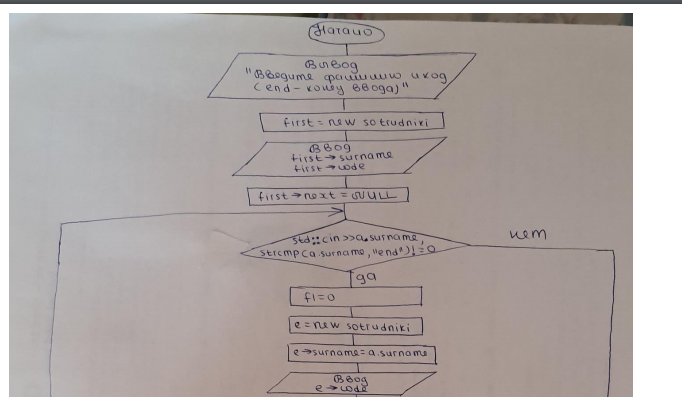 Начало
Вывод
"Введите фамилию и код
(end - конец ввода)"
first = new sotrudniki
Ввод
first → surname
first → code
first → next = NULL
std::cin >> a.surname,
strcmp(a.surname, "end") != 0
нет
да
fl = 0
e = new sotrudniki
e → surname = a.surname
Ввод
e → code